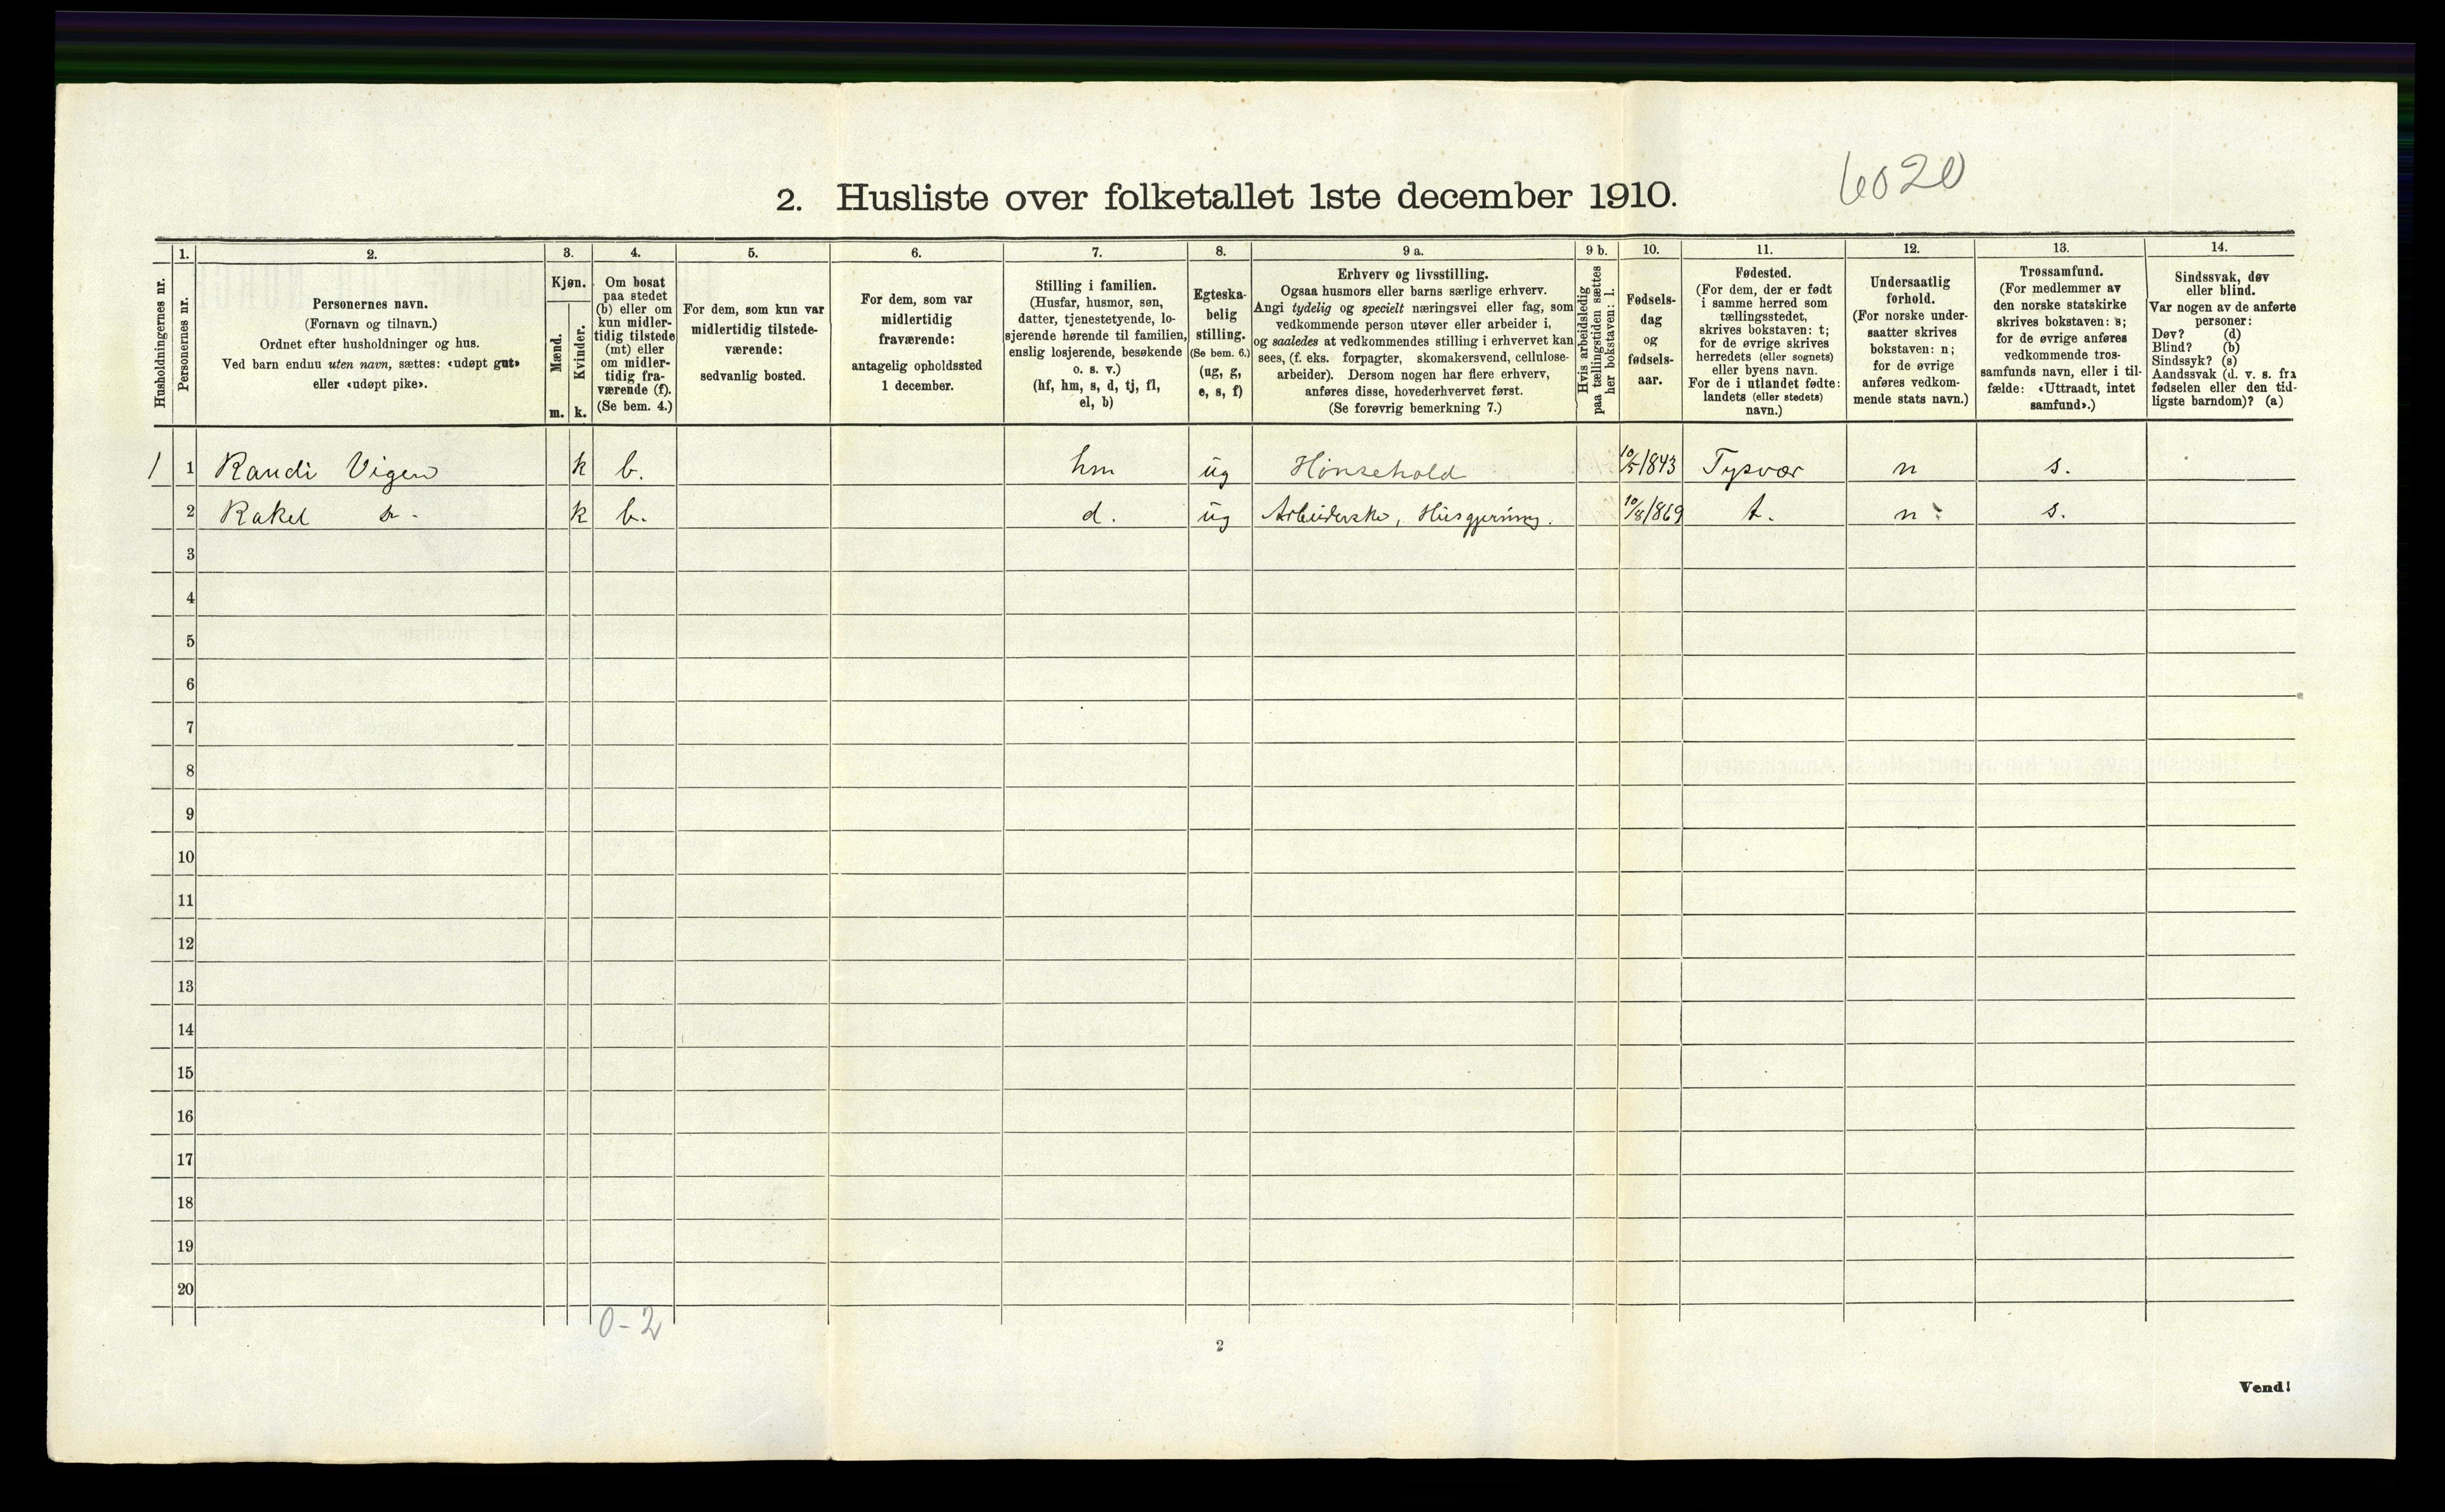 6020
2. Husliste over folketallet 1ste december 1910.
Husholdningernes nr.
1.
Personernes nr.
2.
Personernes navn.
(Fornavn og tilnavn.)
Ordnet efter husholdninger og hus.
Ved barn endnu uten navn, sættes: «udøpt gut»
eller «udøpt pike».
3.
Kjøn.
Mænd.
Kvinder.
m. k.
4.
Om bosat
paa stedet
(b) eller om
kun midler-
tidig tilstede
(mt) eller
om midler-
tidig fra-
værende (f).
(Se bem. 4.)
5.
For dem, som kun var
midlertidig tilstede-
værende:
sedvanlig bosted.
6.
For dem, som var
midlertidig
fraværende:
antagelig opholdssted
1 december.
7.
Stilling i familien.
(Husfar, husmor, søn,
datter, tjenestetyende, lo-
sjerende hørende til familien,
enslig losjerende, besøkende
o. s. v.)
(hf, hm, s, d, tj, fl,
el, b)
8.
Egteska-
belig
stilling.
(Se bem. 6.)
(ug, g,
e, s, f)
9 a.
Erhverv og livsstilling.
Ogsaa husmors eller barns særlige erhverv.
Angi tydelig og specielt næringsvei eller fag, som
vedkommende person utøver eller arbeider i,
og saaledes at vedkommendes stilling i erhvervet kan
sees, (f. eks. forpagter, skomakersvend, cellulose-
arbeider). Dersom nogen har flere erhverv,
anføres disse, hovederhvervet først.
(Se forøvrig bemerkning 7.)
9 b.
Hvis arbeidsledig
paa tællingstiden sættes
her bokstaven: l.
10.
Fødsels-
dag
og
fødsels-
aar.
11.
Fødested.
(For dem, der er født
i samme herred som
tællingsstedet,
skrives bokstaven: t;
for de øvrige skrives
herredets (eller sognets)
eller byens navn.
For de i utlandet fødte:
landets (eller stedets)
navn.)
12.
Undersaatlig
forhold.
(For norske under-
saatter skrives
bokstaven: n;
for de øvrige
anføres vedkom-
mende stats navn.)
13.
Trossamfund.
(For medlemmer av
den norske statskirke
skrives bokstaven: s;
for de øvrige anføres
vedkommende tros-
samfunds navn, eller i til-
fælde: «Uttraadt, intet
samfund».)
14.
Sindssvak, døv
eller blind.
Var nogen av de anførte
personer:
Døv? (d)
Blind? (b)
Sindssyk? (s)
Aandssvak (d. v. s. fra
fødselen eller den tid-
ligste barndom)? (a)
1 1 Randi Vigen k b. hm ug Hönsehold 10/5 1843 Tysvær n s.
2 Rakel k b. d. ug Arbeiderske, Husgjerning. 10/8 1869 t. n s.
3
4
5
6
7
8
9
10
11
12
13
14
15
16
17
18
19
20
0-2
2
Vend!